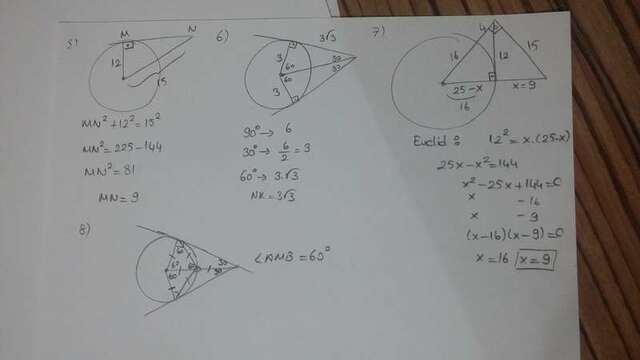 5)
M
N
12
15
MN²+12²=15²
MN²=225-144
MN²=81
MN=9
6)
3√3
3
60
60
30
30
3
90°→ 6
30°→ 6/2 = 3
60°→ 3√3
NK=3√3
7)
4
16
12
15
25-x
x=9
16
Euclid : 12²= x.(25-x)
25x-x²=144
x²-25x+144=0
x -16
x -9
(x-16)(x-9)=0
x=16 x=9
8)
60
60
60
30
30
∠AMB=60°